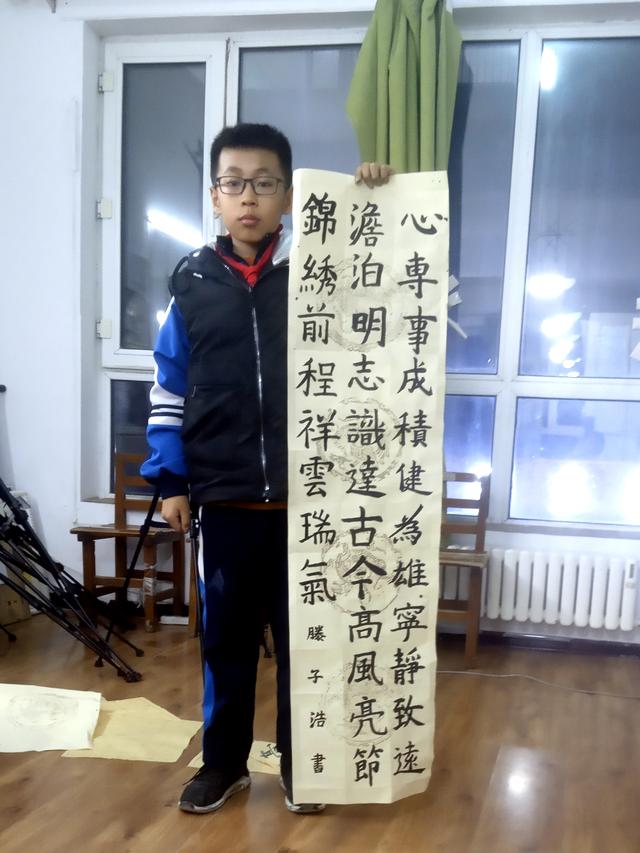 心専事成積健為雄寧靜致遠
澹泊明志識達古今高風亮節
錦綉前程祥雲瑞氣
滕子浩書